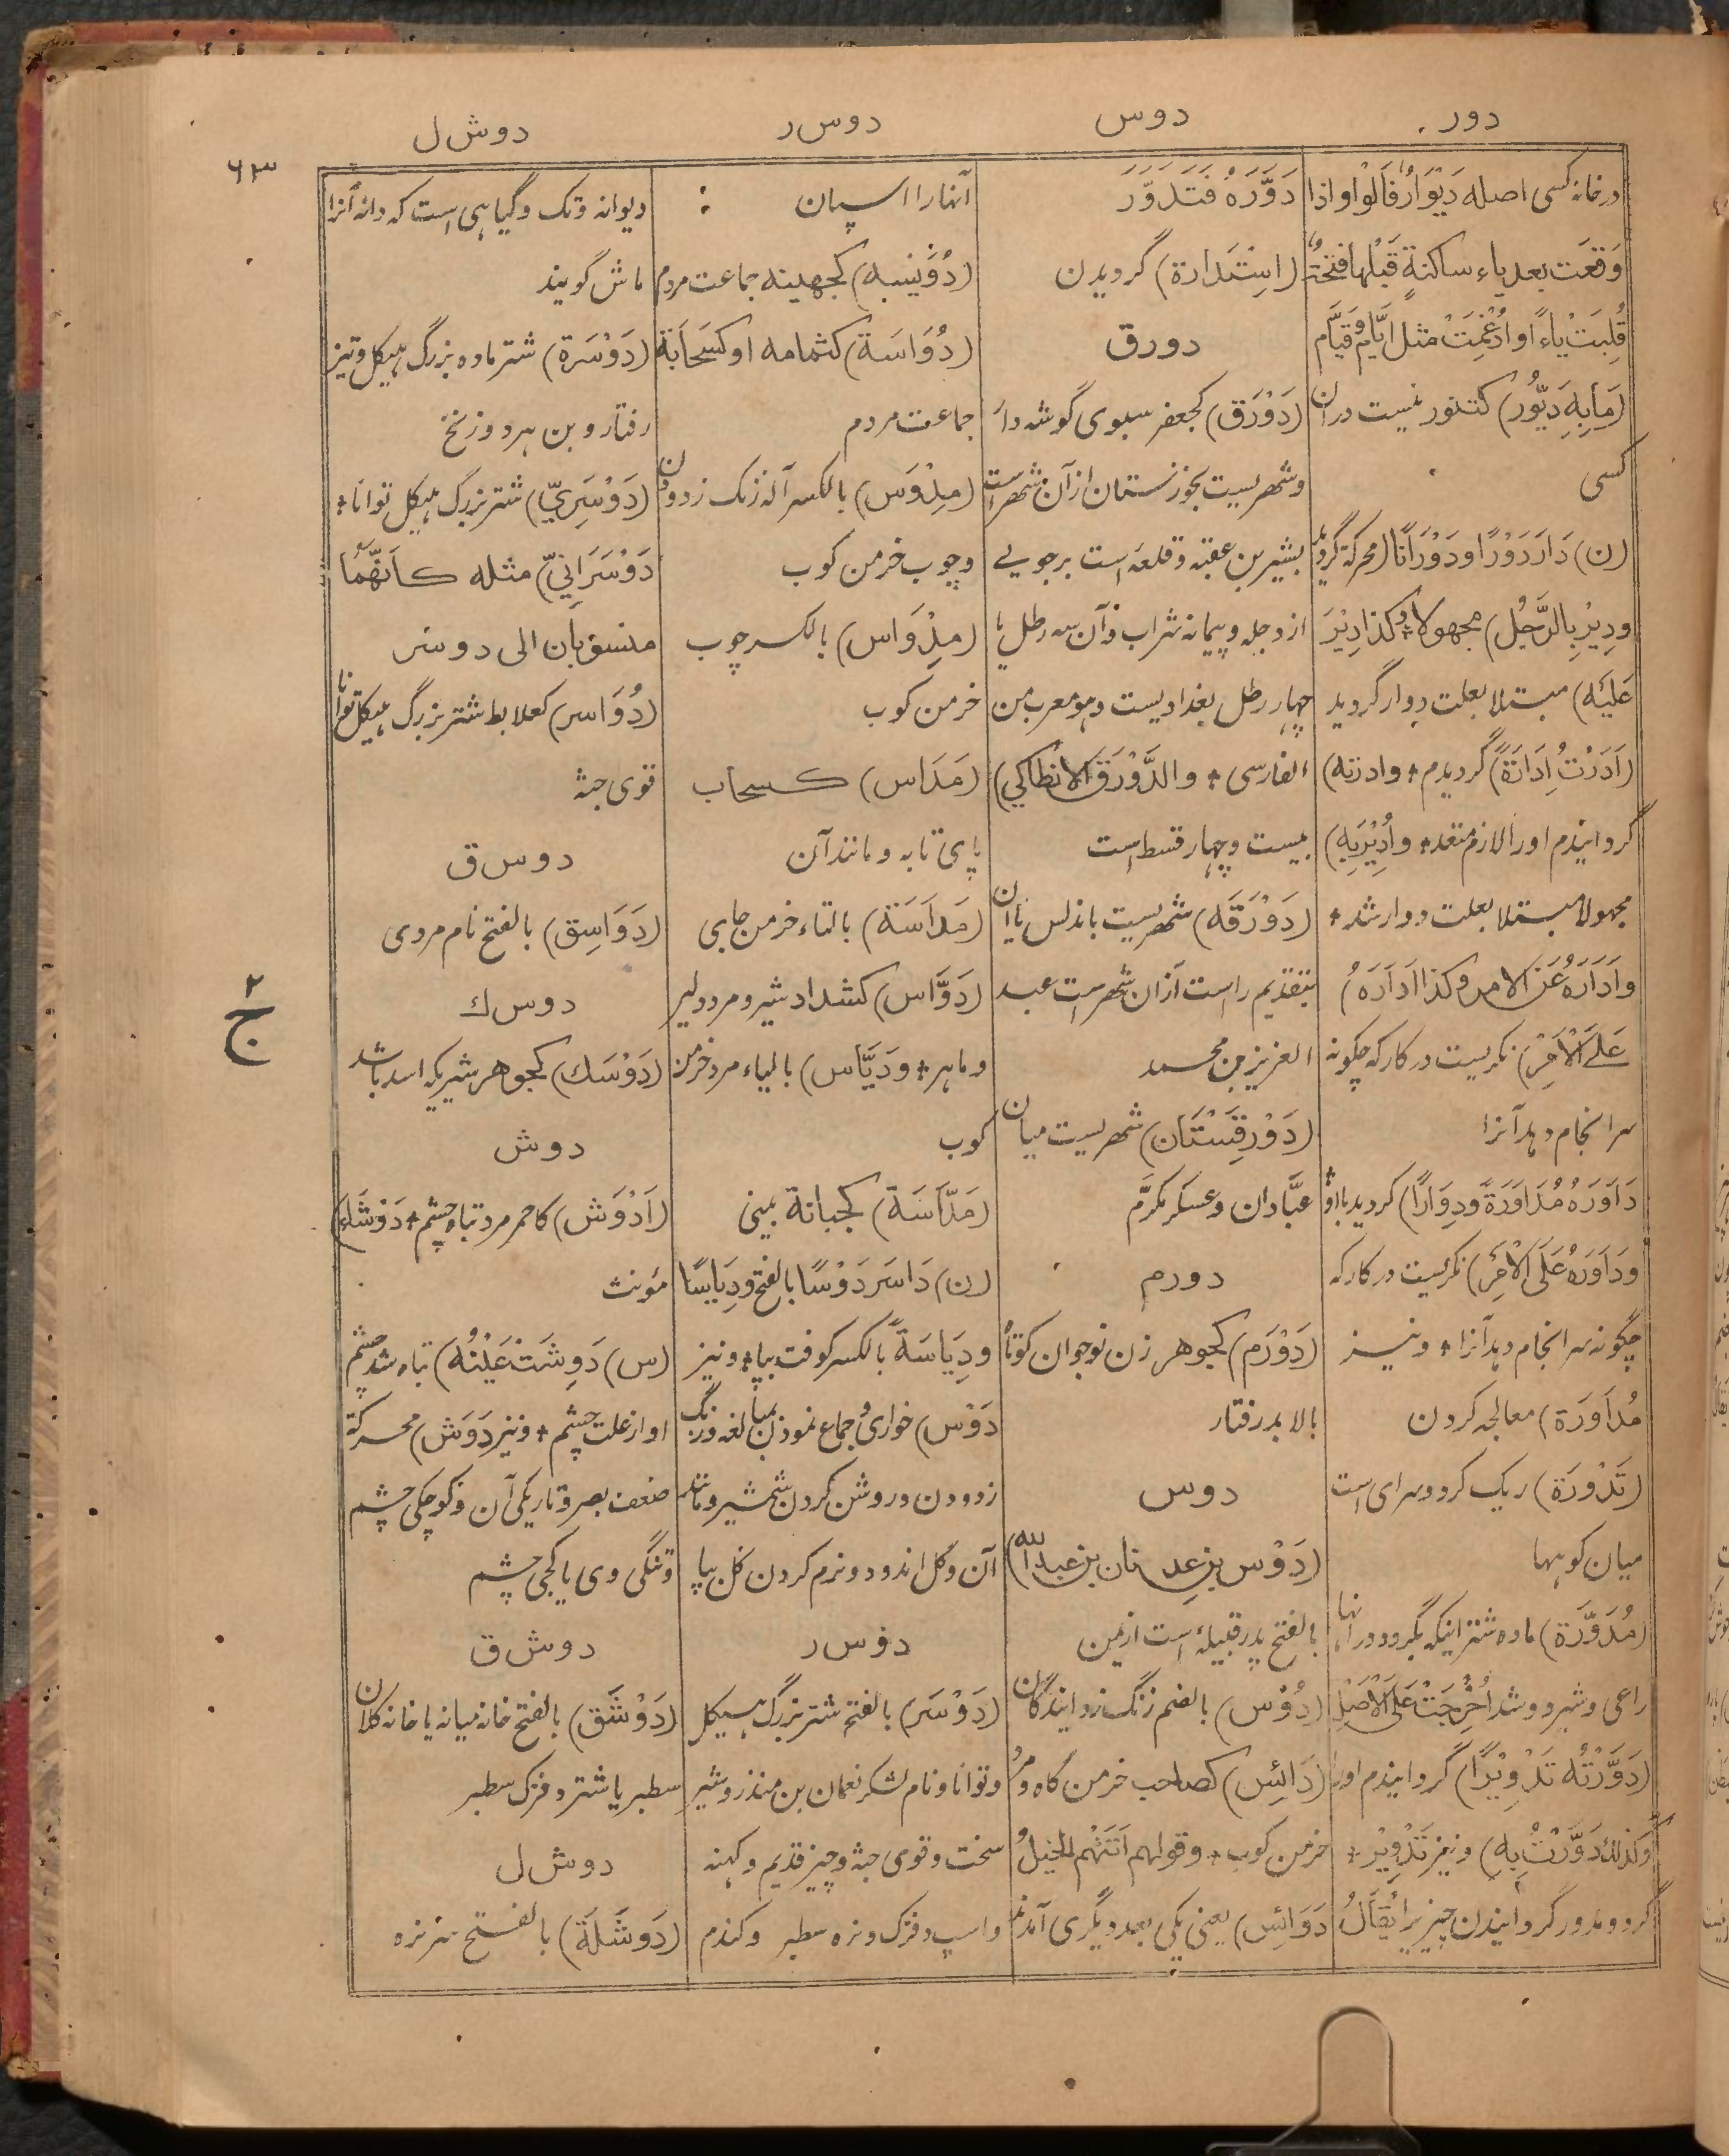 دور
دوس
دوس ر
دوش ل
۶۳
درخانه کسی اصله دَیْوَارٌ فَالْوَاو اذا
وَقَعَت بعد یاء ساکنةٍ قَبْلَها فتحَةٌ
قُلِبَتْ یاءً او اُدْغِمَتْ مثل ایّام و قَیّام
(مَابِهِ دَیُّور) کتنور نیست دران
کسی
(ن) دَارَ دَوْرًا و دَوَرَانًا (محرکة گردید
و دِیْرَ بِالرَّجُلِ) مجهولا و کذا اُدِیْرَ
عَلَیْهِ) مبتلا بعلت دوار گردید
(اَدَرْتُ اِدَارَةً) گردیدم + وادرته)
گردانیدم اورا لازم متعد + و اُدِیْرَ بِهِ)
مجهولا مبتلا بعلت دوار شد +
و اَدَارَهُ عَنِ الامر و کذا اَدَارَهُ
عَلَی الْاَمْرِ) نگریست در کار که چگونه
سرانجام دهد آنرا
دَاوَرَهُ مُدَاوَرَةً و دِوَارًا) گردید با او
و دَاوَرَهُ عَلَی الْاَمْرِ) نگریست در کار که
چگونه سرانجام دهد آنرا + و نیز
مُدَاوَرَة) معالجه کردن
(تَدْوِرَة) ریک گرد و سرای است
میان کوهها
(مُدَوَّرَة) ماده شتر اینکه بگردد در آنها
راعی و شیر دوشد اُخْرِجَتْ عَلَی الْاَصْلِ
(دَوَّرْتُهُ تَدْوِیْرًا) گردانیدم اورا
وکذلك دَوَّرْتُ بِهِ) و نیز تَدْوِیْر +
گرد و مدور گردانیدن چیزیرا یُقَالُ
دَوَّرَهُ فَتَدَوَّرَ
(اِسْتَدَارَة) گردیدن
دورق
(دَوْرَق) کجعفر سبوی گوشه دار
و شهریست بخوزستان ازآن شهر است
بشیر بن عقبه و قلعه است برجویے
از دجله و پیمانه شراب و آن سه رطل یا
چهار رطل بغدادیست و هو معرب من
الفارسی + و الدَّوْرَق الانطاکي)
بیست و چهار قسط است
(دَوْرَقَه) شهریست باندلس یا آن
بتقدیم را است ازان شهر است عبد
العزیز بن محمد
(دَوْرَقِسْتَان) شهریست میان
عبّادان و عسکر مکرّم
دورم
(دَوْرَم) کجوهر زن نوجوان کوتاه
بالا بدرفتار
دوس
(دَوْس بن عدنان بن عبدالله)
بالفتح پدر قبیلهٔ است از یمن
(دُوْس) بالضم زنگ زدایندگان
(دَائِس) کصاحب خرمن گاه و مرد
خرمن کوب + و قولهم اَتَتْهُم الخیلُ
دَوَائِس) یعنی یکی بعد دیگری آمدند
آنها را اسپان :
(دُوَیْنِیَه) کجهینه جماعت مردم
(دُوَاسَة) کثمامه او کسَحَابَة
جماعت مردم
(مِدْوَس) بالکسر آله زنک زدودن
و چوب خرمن کوب
(مِدْوَاس) بالکسر چوب
خرمن کوب
(مَدَاس) کسحاب
پای تابه و مانند آن
(مَدَاسَة) بالتاء خرمن جای
(دَوَّاس) کشداد شیر و مرد دلیر
و ماهر + و دَیَّاس) بالیاء مرد خرمن
کوب
(مَدَّاسَة) کجبانة بینی
(ن) دَاسَ دَوْسًا بالفتح و دِیَاسًا
و دِیَاسَةً بالکسر کوفت بپا + و نیز
دَوْس) خواری و جماع نمودن بمبالغه و زنگ
زدودن و روشن کردن شمشیر و مانند
آن و گل اندود و نرم کردن گل بپا
دوس ر
(دَوْسَر) بالفتح شتر بزرگ هیکل
و توانا و نام لشکر نعمان بن منذر و شیر
سخت و قوی جثه و چیز قدیم و کهنه
و اسپ و فزک و نره سطبر و گندم
دیوانه و تک و گیاهی است که دانه آنرا
ماش گویند
(دَوْسَرَة) شتر ماده بزرگ هیکل و تیز
رفتار و بن هر دو زنخ
(دَوْسَرِيّ) شتر بزرگ هیکل توانا +
دَوْسَرَانِيّ) مثله کأَنَّهُمَا
منسوبان الی دوسر
(دُوَاسِر) کعلابط شتر بزرگ هیکل توانا
قوی جثه
دوس ق
(دَوَاسِق) بالفتح نام مردی
دوس ك
(دَوْسَك) کجوهر شیر یکه اسد باشد
دوش
(اَدْوَش) کاحمر مرد تباه چشم + دَوْشَاء)
مؤنث
(س) دَوِشَتْ عَیْنُهُ) تباه شد چشم
او از علت چشم + و نیز دَوَش) محرکة
ضعف بصر و تاریکی آن و کوچکی چشم
و تنگی وی یا کجی چشم
دوش ق
(دَوْشَق) بالفتح خانه میانه یا خانه کلان
سطبر یا شتر و فزک سطبر
دوش ل
(دَوشَلَة) بالفتح سر نره
۲
ج